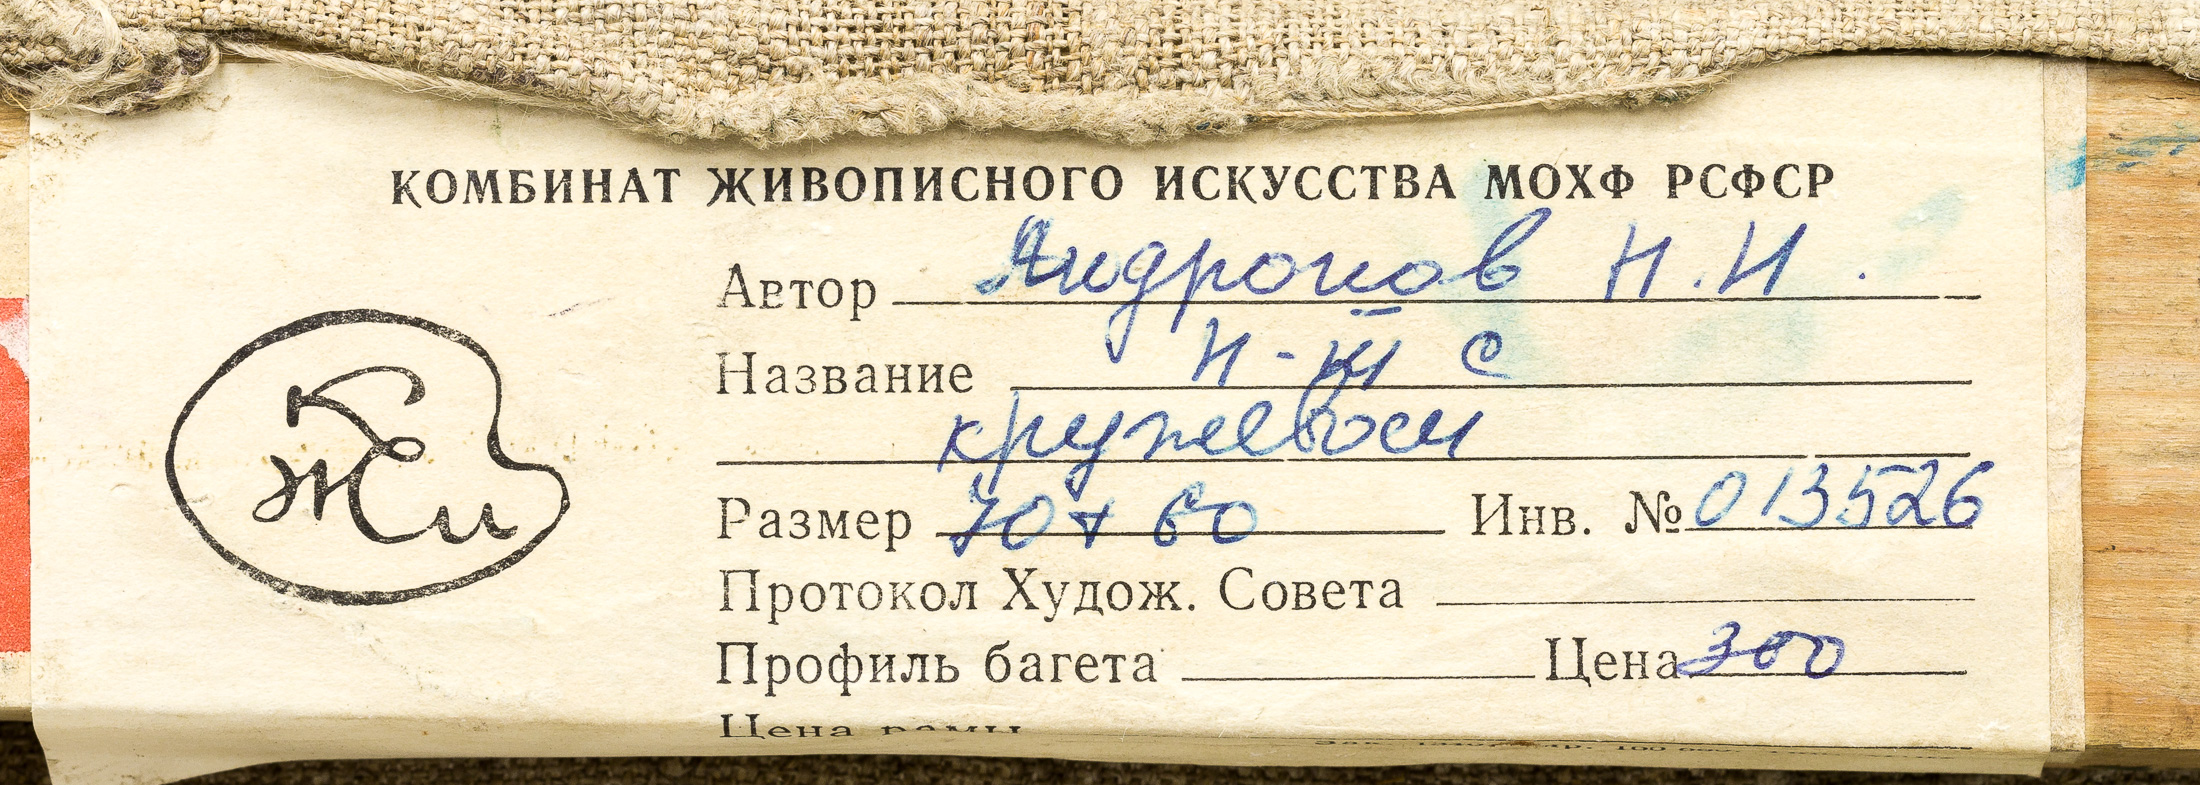 КОМБИНАТ ЖИВОПИСНОГО ИСКУССТВА МОХФ РСФСР
Автор Андронов Н.И.
Название Н-Ш с
кружевом
Размер 70 х 60 Инв. № 013526
КЖи
Протокол Худож. Совета
Профиль багета Цена 300
Цена рамы